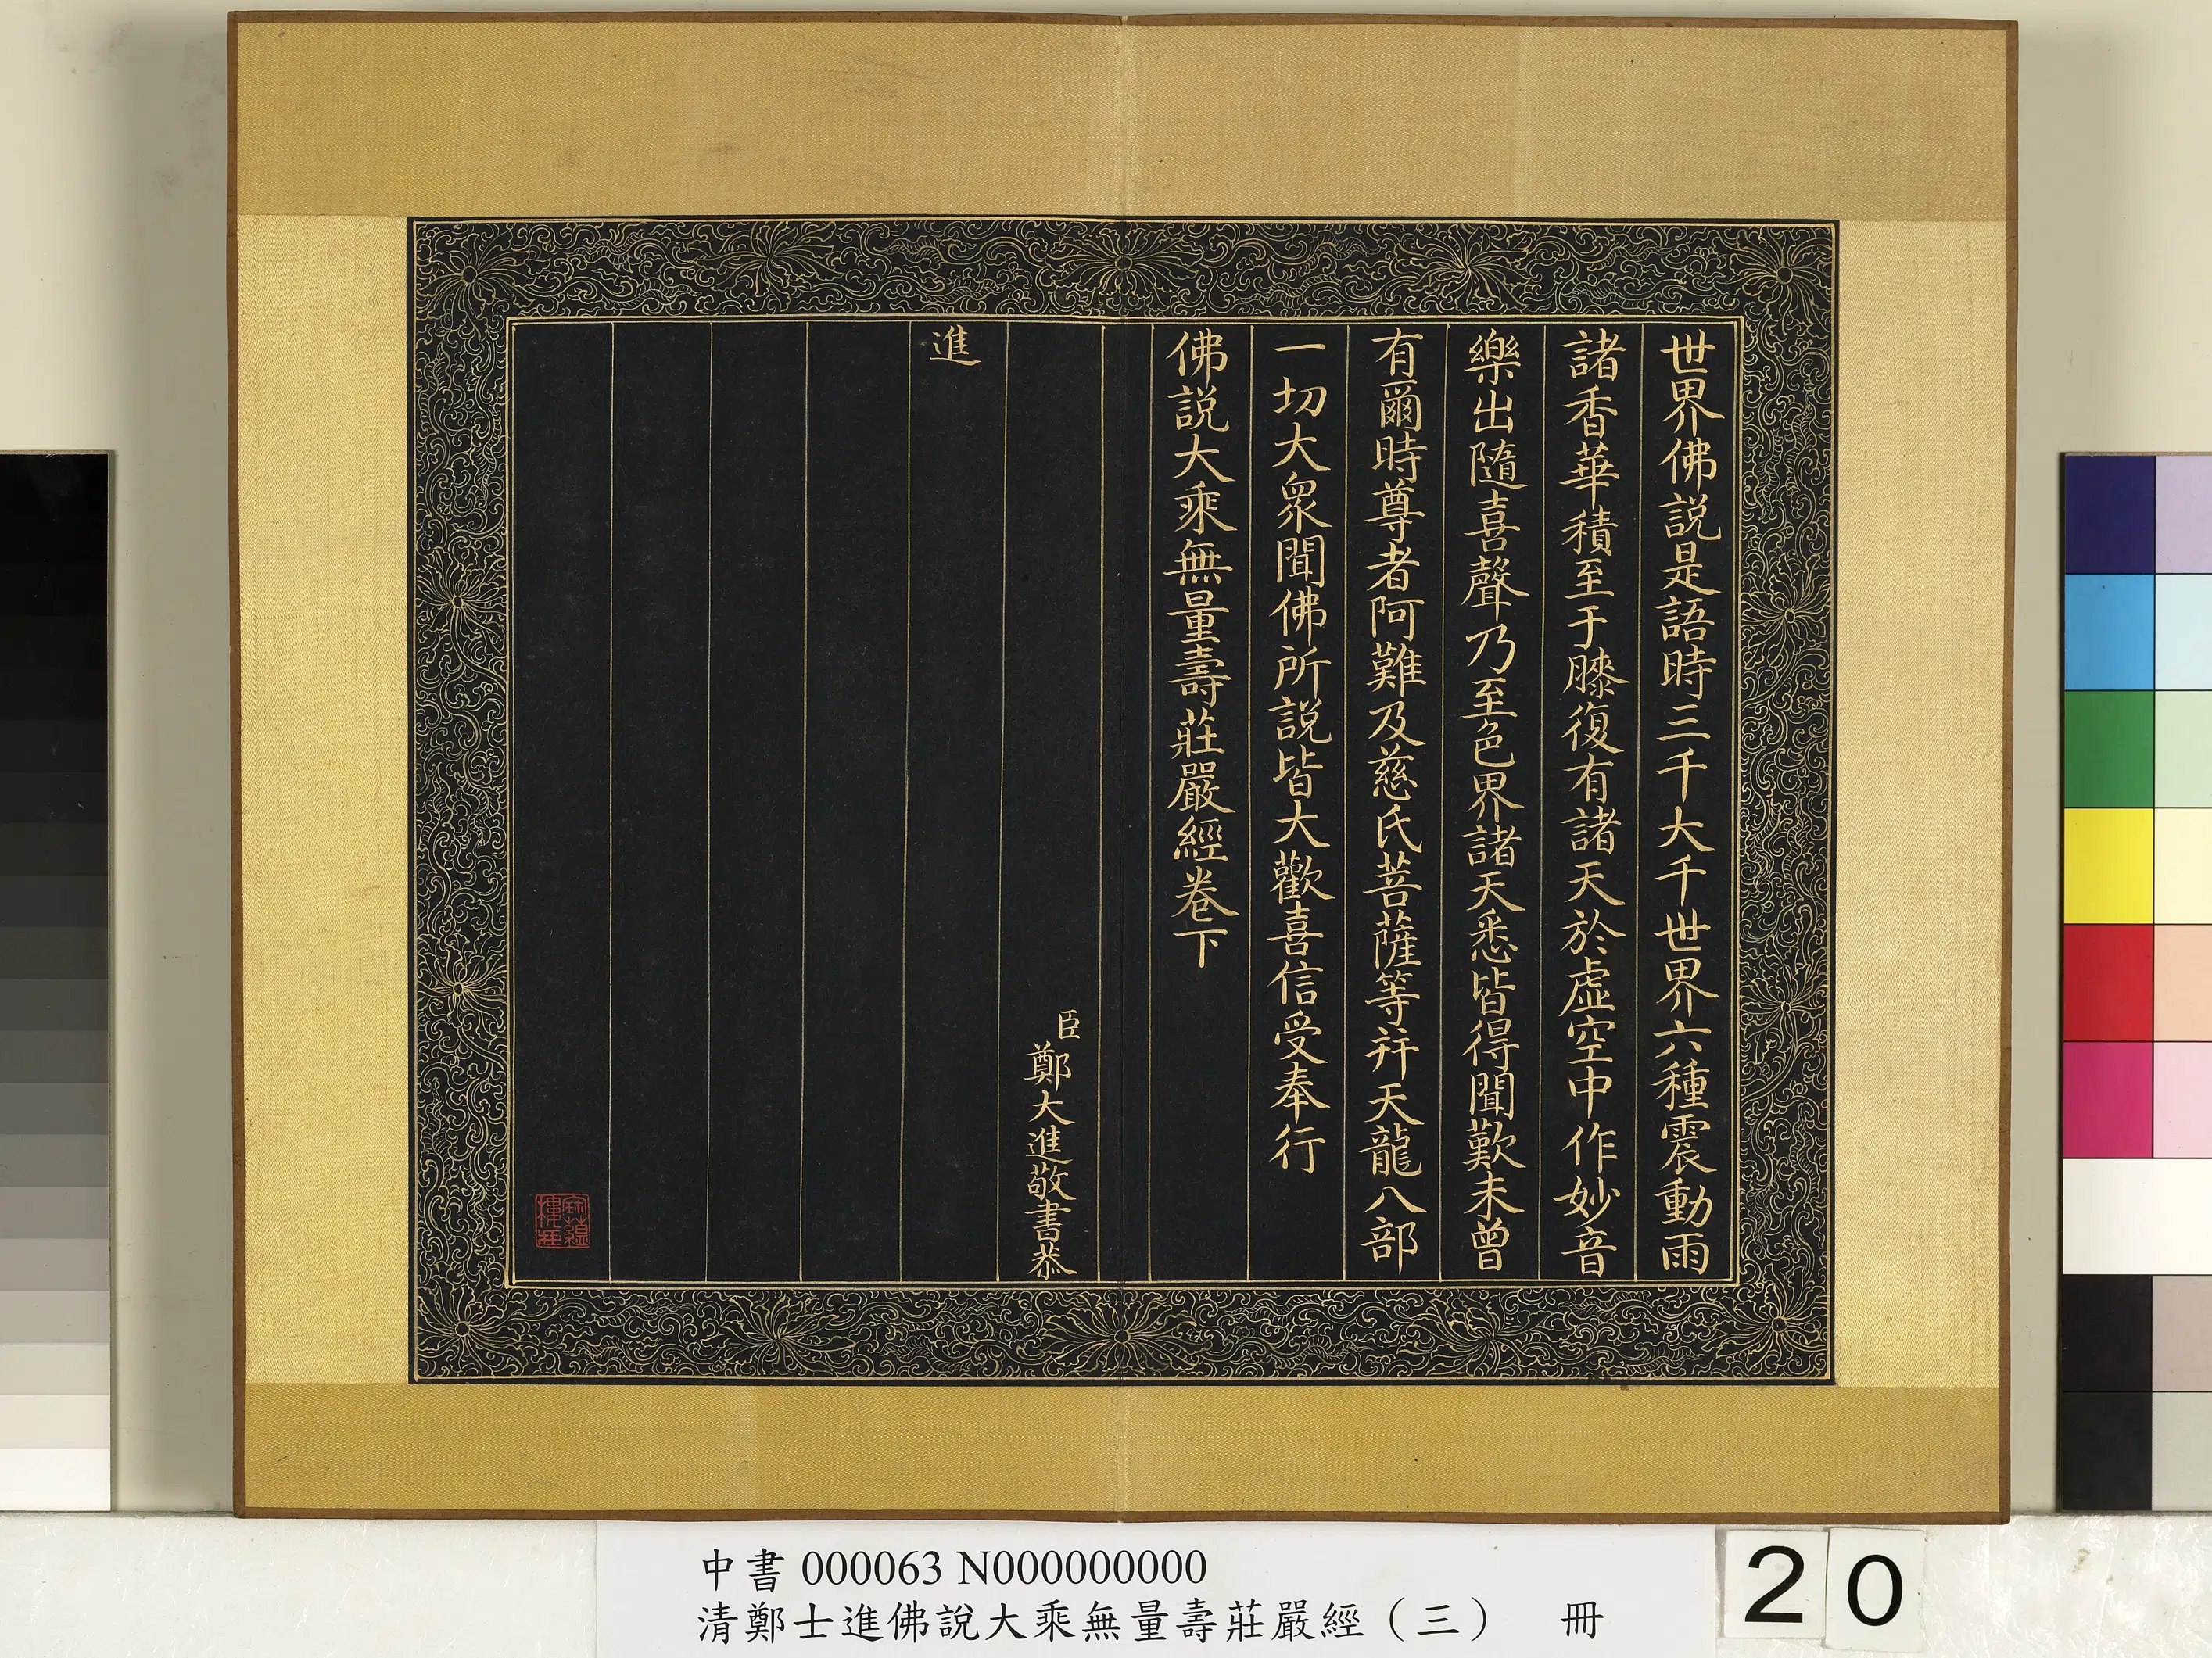 世界佛説是語時三千大千世界六種震動雨
諸香華積至于膝復有諸天於虛空中作妙音
樂出隨喜聲乃至色界諸天悉皆得聞歎未曾
有爾時尊者阿難及慈氏菩薩等并天龍八部
一切大眾聞佛所説皆大歡喜信受奉行
佛説大乘無量壽莊嚴經卷下
臣鄭大進敬書恭
進
中書 000063 N000000000
清鄭士進佛說大乘無量壽莊嚴經（三） 冊
20